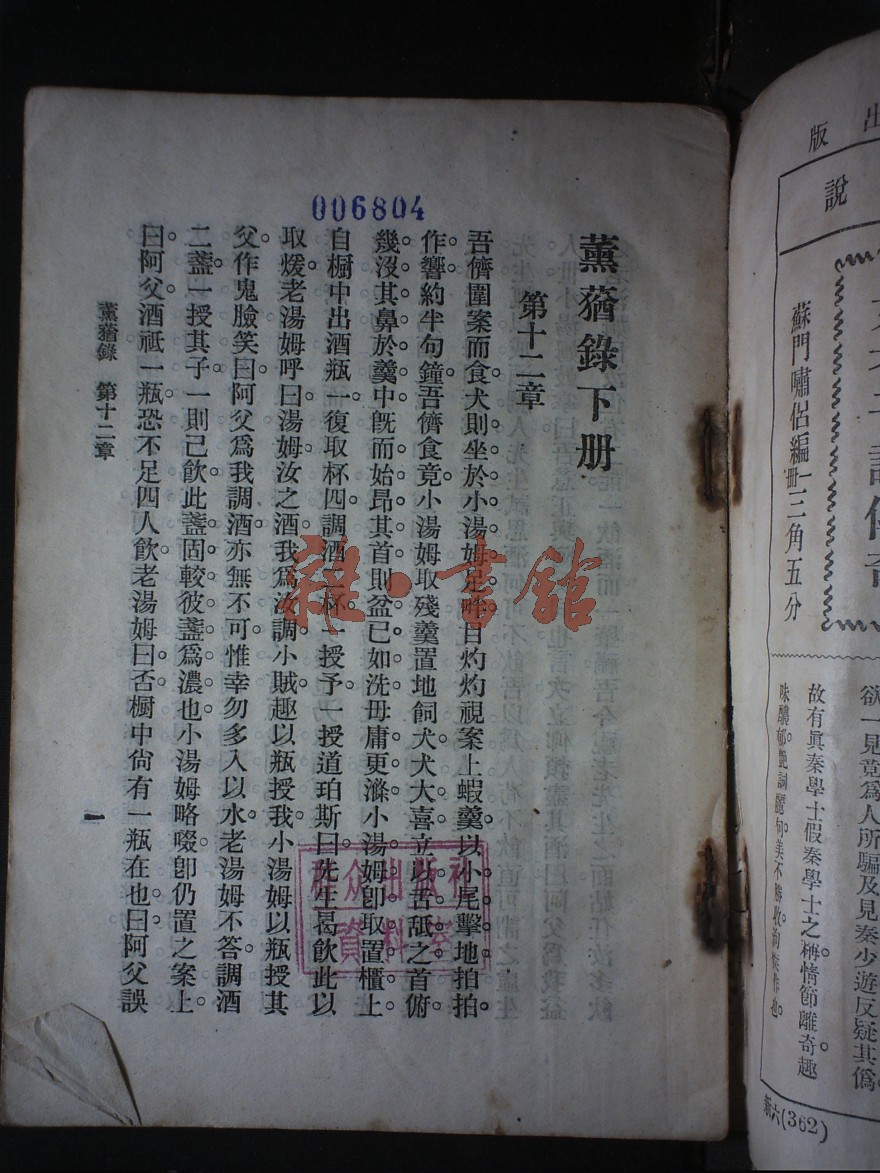 006804
薰蕕錄下册
第十二章
吾儕圍案而食犬則坐於小湯姆足畔目灼灼視案上蝦羹以小尾擊地拍拍
作響約半句鐘吾儕食竟小湯姆取殘羹置地飼犬犬大喜立以舌舐之首俯
幾沒其鼻於羹中旣而始昂其首則盆已如洗毋庸更滌小湯姆卽取置櫃上
自櫥中出酒瓶一復取杯四調酒二杯一授予一授道珀斯曰先生曷飲此以
取煖老湯姆呼曰湯姆汝之酒我爲汝調小賊趣以瓶授我小湯姆以瓶授其
父作鬼臉笑曰阿父爲我調酒亦無不可惟幸勿多入以水老湯姆不答調酒
二盞一授其子一則己飲此盞固較彼盞爲濃也小湯姆略啜卽仍置之案上
曰阿父酒祗一瓶恐不足四人飲老湯姆曰否櫥中尙有一瓶在也曰阿父誤
薰蕕錄 第十二章
一
雜·書館
群众出版社
資料室
出
版
說
蘇門嘯侶編 一册 三角五分
欲一見竟爲人所騙及見秦少遊反疑其僞
故有眞秦學士假秦學士之稱情節離奇趣
味醲郁艷詞麗句美不勝收洵傑作也
新六(362)